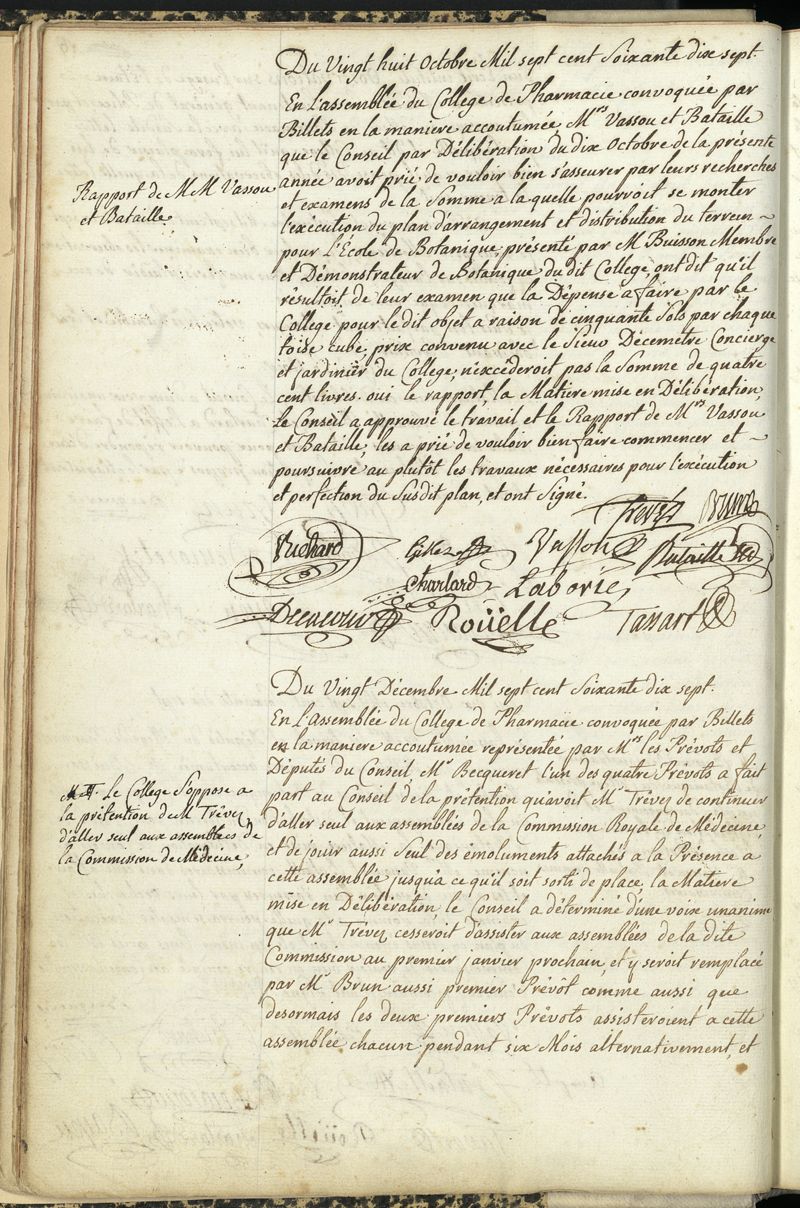 Du Vingt huit Octobre Mil sept cent Soixante dix sept.
En l'assemblée du College de Pharmacie convoquée par
Billets en la maniere accoutumée Mrs Vassou et Bataille
que le Conseil par Délibération du dix Octobre de la présente
Rapport de M M Vassou
et Bataille.
année avoit prié de vouloir bien s'asseurer par leurs recherches
et examens de la Somme a la quelle pourvoit se monter
l'exécution du plan d'arrangement et distribution du terrein
pour l'École de Botanique, présenté par M Buisson Membre
et Démonstrateur de Botanique du dit College, ont dit qu'il
résultoit de leur examen que la Dépense a faire par le
College pour le dit objet a raison de cinquante Sols par chaque
toise cube, prix convenu avec le Sieur Décemetre Concierge
et jardinier du College, n'excéderoit pas la Somme de quatre
cent livres. oui le rapport, la Matiere mise en Délibération,
Le Conseil a approuvé le travail et le Rapport de Mrs Vassou
et Bataille, les a prié de vouloir bien faire commencer et
poursuivre au plutôt les travaux nécessaires pour l'exécution
et perfection du Susdit plan, et ont Signé.
Trevez Brun
Richard Vassou Bataille
Charlard Laborie
Roüelle Tassart
Du Vingt Décembre Mil sept cent Soixante dix sept.
En l'Assemblée du College de Pharmacie convoquée par Billets
en la maniere accoutumée représentée par Mrs les Prévots et
Députés du Conseil, Mr Becqueret l'un des quatre Prévots a fait
Le College S'oppose a
la prétention de M Trévez
d'aller seul aux assemblées de
la Commission de Médecine,
part au Conseil de la prétention qu'avoit Mr Trévez de continuer
d'aller seul aux assemblées de la Commission Royale de Médecine,
et de jouir aussi Seul des émoluments attachés a la Présence a
cette assemblée jusqu'a ce qu'il soit sorti de place, la Matiere
mise en Délibération, le Conseil a déterminé d'une voix unanime
que Mr Trévez cesseroit d'assister aux assemblées de la dite
Commission au premier janvier prochain, et y seroit remplacé
par Mr Brun aussi premier Prévôt comme aussi que
desormais les deux premiers Prévots assisteroient a cette
assemblée chacun pendant six Mois alternativement, et